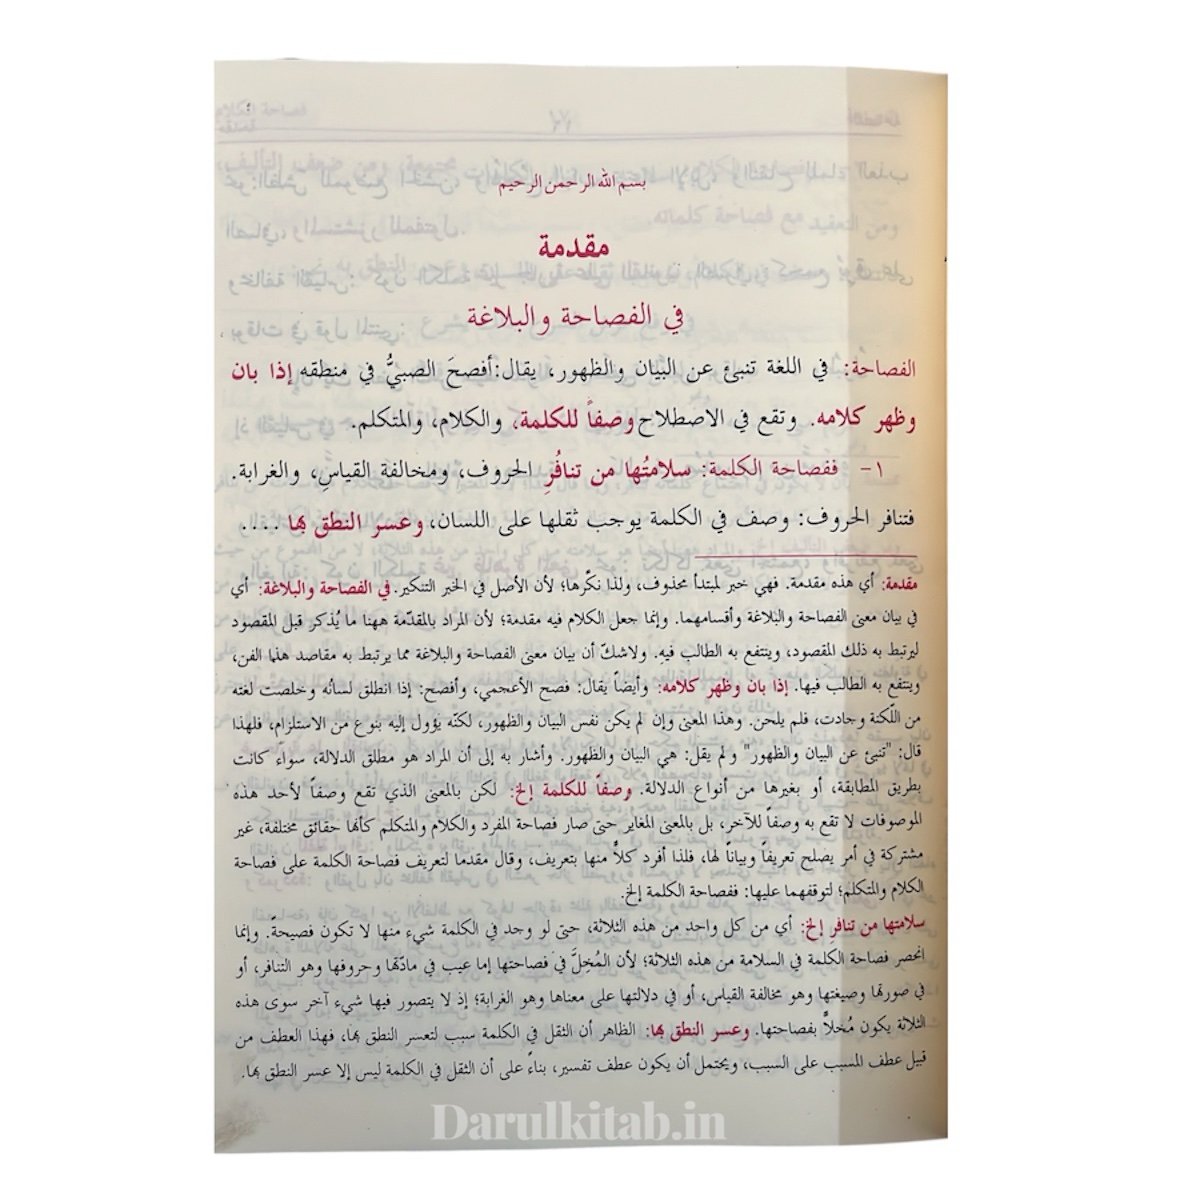 بسم الله الرحمن الرحيم
مقدمة
في الفصاحة والبلاغة
الفصاحة: في اللغة تنبئ عن البيان والظهور، يقال:أفصحَ الصبيُّ في منطقه إذا بان
وظهر كلامه. وتقع في الاصطلاح وصفاً للكلمة، والكلام، والمتكلم.
١- ففصاحة الكلمة: سلامتُها من تنافُرِ الحروف، ومخالفة القياسِ، والغرابة.
فتنافر الحروف: وصف في الكلمة يوجب ثقلها على اللسان، وعسر النطق بها ....
مقدمة: أي هذه مقدمة. فهي خبر لمبتدأ محذوف، ولذا نكّرها؛ لأن الأصل في الخبر التنكير. في الفصاحة والبلاغة: أي
في بيان معنى الفصاحة والبلاغة وأقسامهما. وإنما جعل الكلام فيه مقدمة؛ لأن المراد بالمقدّمة ههنا ما يُذكر قبل المقصود
ليرتبط به ذلك المقصود، وينتفع به الطالب فيه. ولاشكّ أن بيان معنى الفصاحة والبلاغة مما يرتبط به مقاصد هذا الفن،
وينتفع به الطالب فيها. إذا بان وظهر كلامه: وأيضاً يقال: فصح الأعجمي، وأفصح: إذا انطلق لسانُه وخلصت لغته
من اللّكنة وجادت، فلم يلحن. وهذا المعنى وإن لم يكن نفس البيان والظهور، لكنّه يؤول إليه بنوع من الاستلزام، فلهذا
قال: "تنبئ عن البيان والظهور" ولم يقل: هي البيان والظهور. وأشار به إلى أن المراد هو مطلق الدلالة، سواءً كانت
بطريق المطابقة، أو بغيرها من أنواع الدلالة. وصفاً للكلمة إلخ: لكن بالمعنى الذي تقع وصفاً لأحد هذه
الموصوفات لا تقع به وصفاً للآخر، بل بالمعنى المغاير حتى صار فصاحة المفرد والكلام والمتكلم كأنها حقائق مختلفة، غير
مشتركة في أمر يصلح تعريفاً وبياناً لها، فلذا أفرد كلاًّ منها بتعريف، وقال مقدما لتعريف فصاحة الكلمة على فصاحة
الكلام والمتكلم؛ لتوقفهما عليها: ففصاحة الكلمة إلخ.
سلامتها من تنافرِ إلخ: أي من كل واحد من هذه الثلاثة، حتى لو وجد في الكلمة شيء منها لا تكون فصيحةً. وإنما
انحصر فصاحة الكلمة في السلامة من هذه الثلاثة؛ لأن المُخلَّ في فصاحتها إما عيب في مادّتها وحروفها وهو التنافر، أو
في صورتها وصيغتها وهو مخالفة القياس، أو في دلالتها على معناها وهو الغرابة؛ إذ لا يتصور فيها شيء آخر سوى هذه
الثلاثة يكون مُخلاًّ بفصاحتها. وعسر النطق بها: الظاهر أن الثقل في الكلمة سبب لتعسر النطق بها، فهذا العطف من
قبيل عطف المسبب على السبب، ويحتمل أن يكون عطف تفسير، بناءً على أن الثقل في الكلمة ليس إلا عسر النطق بها.
Darulkitab.in